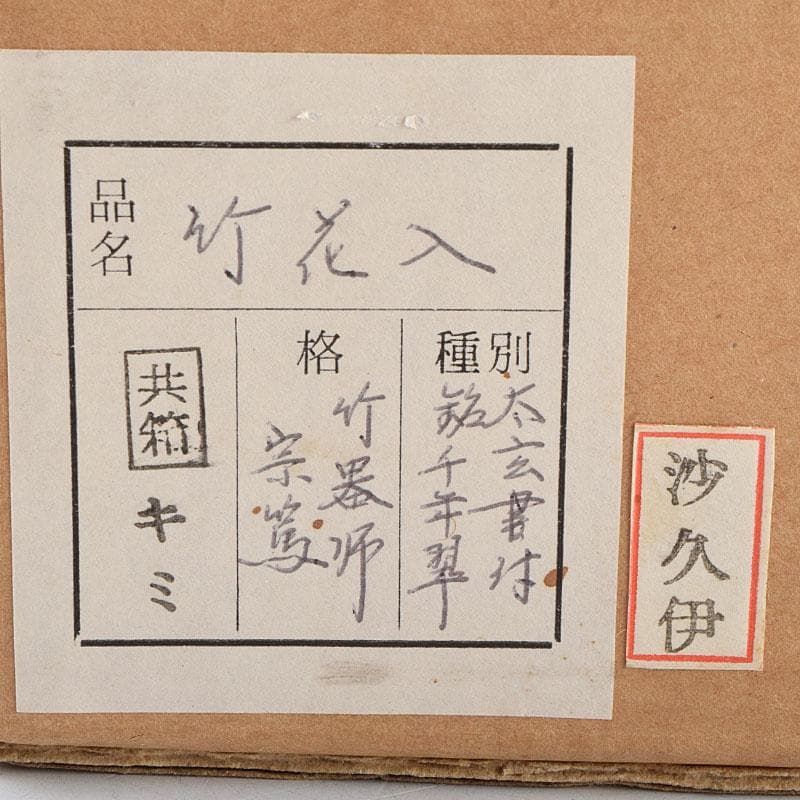 品名
竹花入
種別
太玄書付
銘千年翠
格
竹器师
宗篤
共箱
キミ
沙久伊